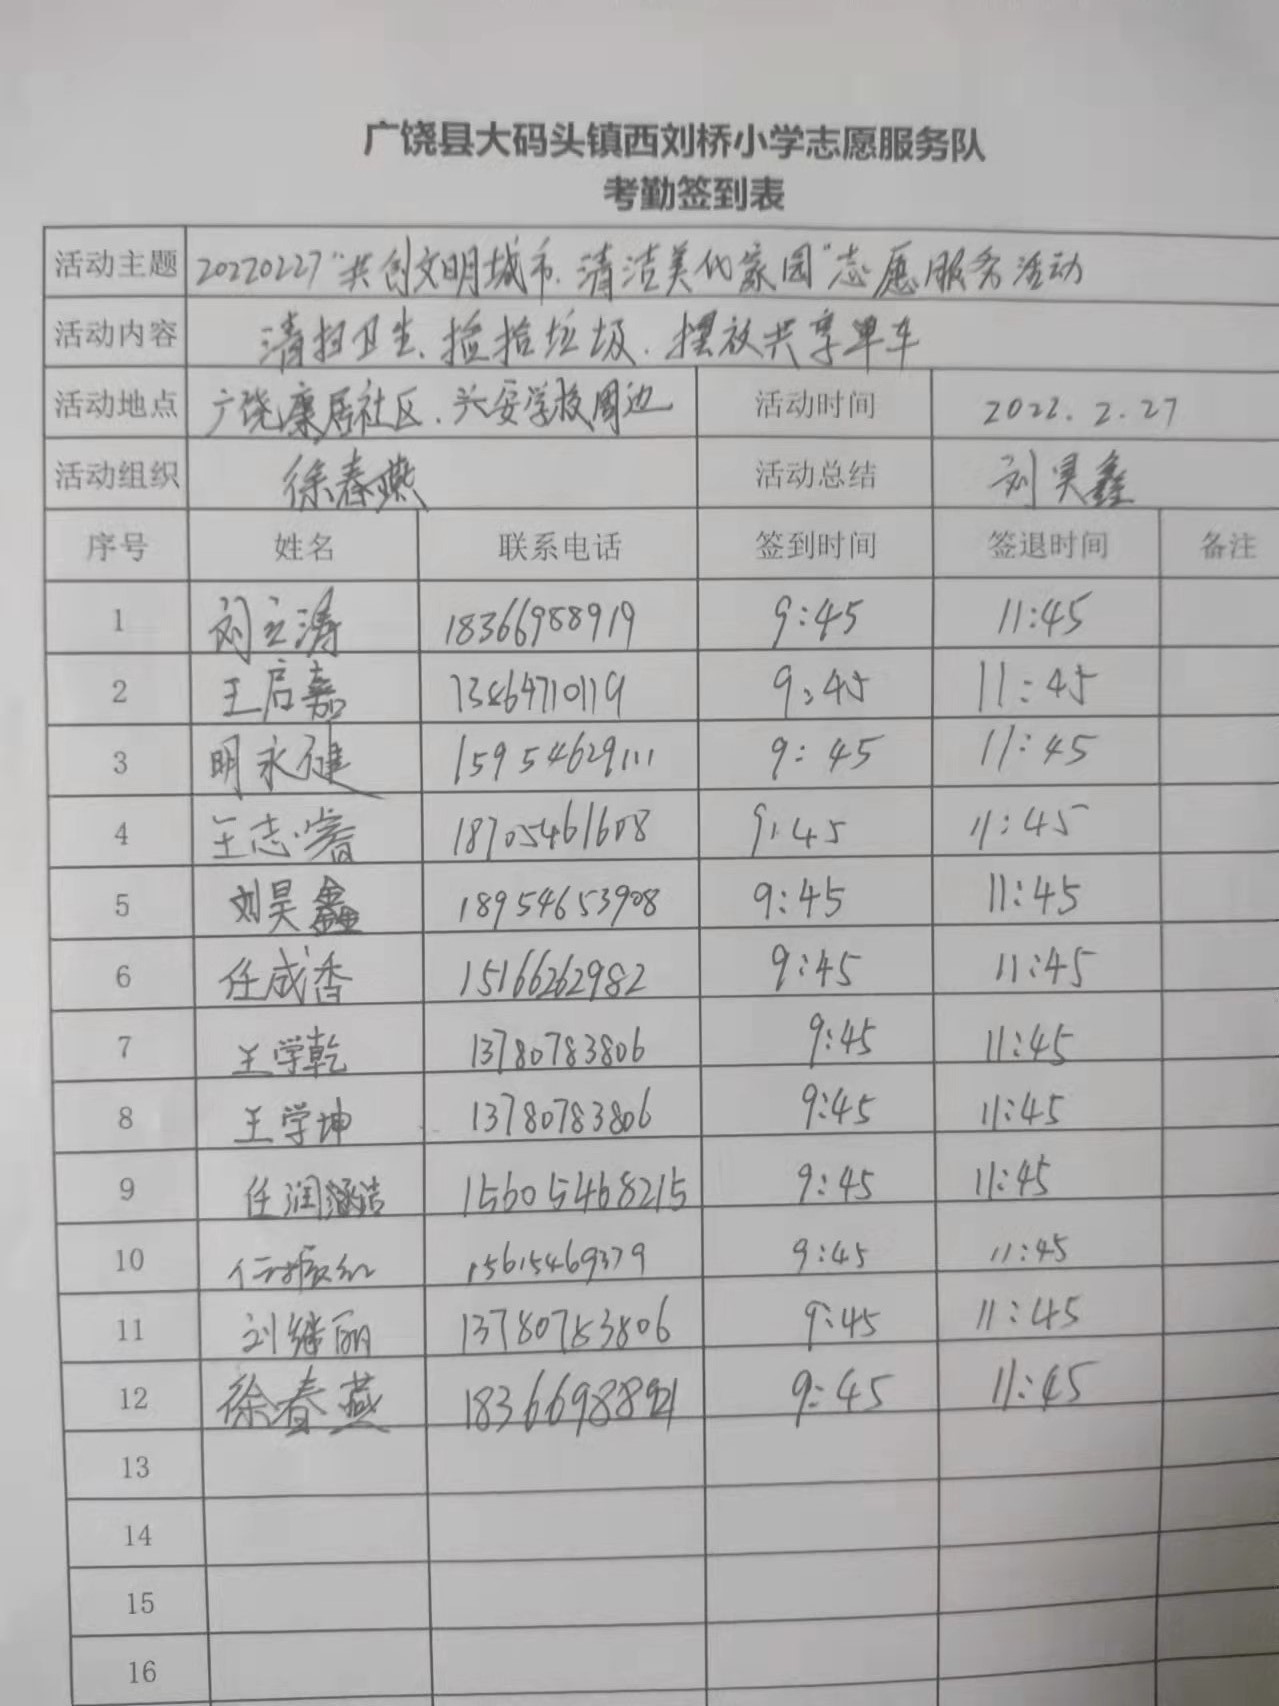 广饶县大码头镇西刘桥小学志愿服务队
考勤签到表
活动主题 20220227“共创文明城市、清洁美化家园”志愿服务活动
活动内容 清扫卫生、捡拾垃圾、摆放共享单车
活动地点 广饶康居社区、兴安学校周边 活动时间 2022.2.27
活动组织 徐春燕 活动总结 刘昊鑫
序号 姓名 联系电话 签到时间 签退时间 备注
1 刘立涛 18366988919 9:45 11:45
2 王启嘉 13864710119 9:45 11:45
3 明永健 15954629111 9:45 11:45
4 王志睿 18705461608 9:45 11:45
5 刘昊鑫 18954653908 9:45 11:45
6 任成香 15166262982 9:45 11:45
7 王学乾 13780783806 9:45 11:45
8 王学坤 13780783806 9:45 11:45
9 任润涵洁 15605468215 9:45 11:45
10 任振红 15615469379 9:45 11:45
11 刘继丽 13780783806 9:45 11:45
12 徐春燕 9:45 11:45
13
14
15
16